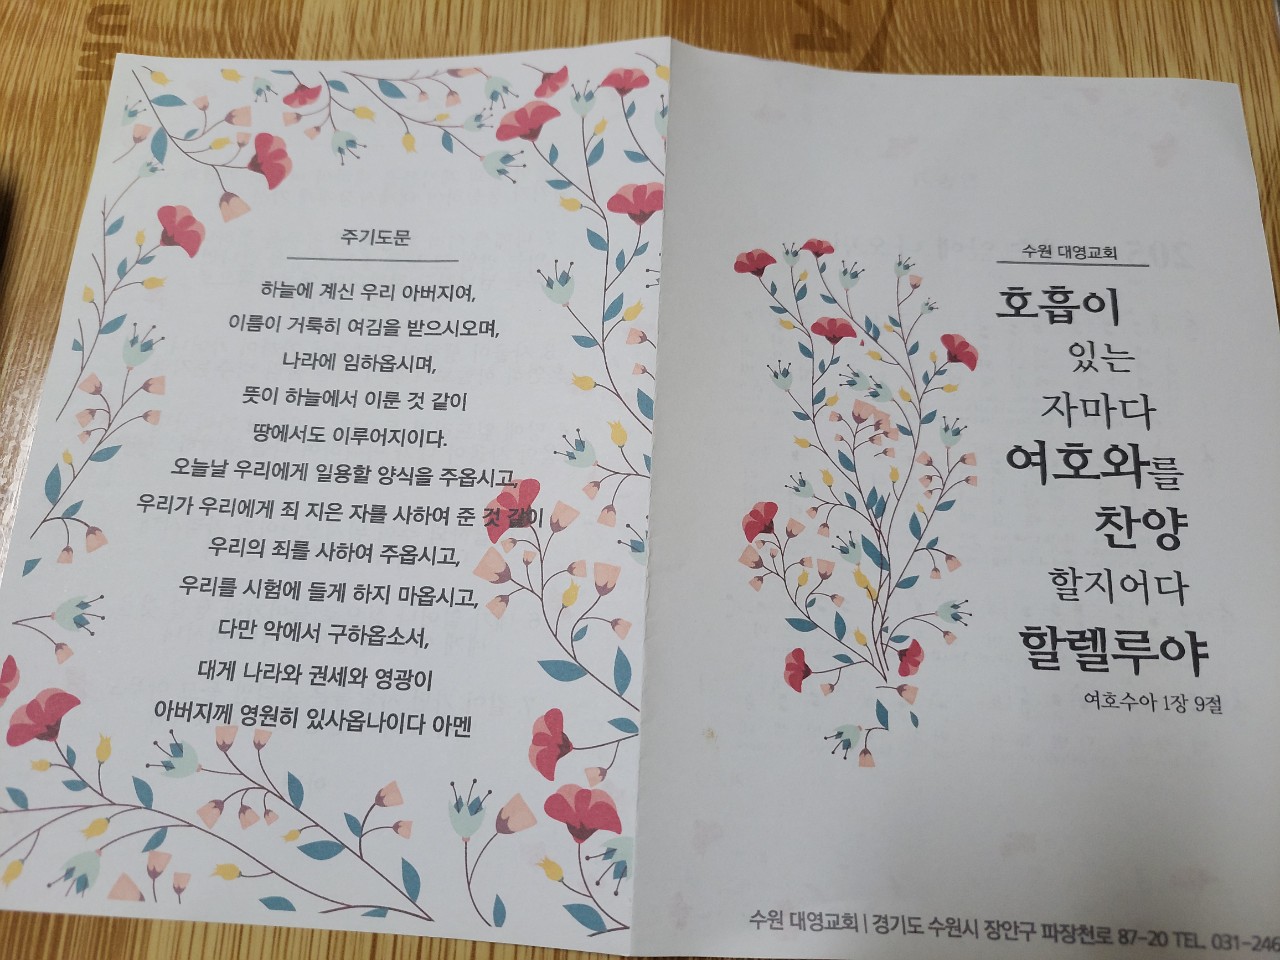 주기도문
하늘에 계신 우리 아버지여,
이름이 거룩히 여김을 받으시오며,
나라에 임하옵시며,
뜻이 하늘에서 이룬 것 같이
땅에서도 이루어지이다.
오늘날 우리에게 일용할 양식을 주옵시고,
우리가 우리에게 죄 지은 자를 사하여 준 것 같이
우리의 죄를 사하여 주옵시고,
우리를 시험에 들게 하지 마옵시고,
다만 악에서 구하옵소서,
대게 나라와 권세와 영광이
아버지께 영원히 있사옵나이다 아멘
수원 대영교회
호흡이
있는
자마다
여호와를
찬양
할지어다
할렐루야
여호수아 1장 9절
수원 대영교회 | 경기도 수원시 장안구 파장천로 87-20 TEL. 031-246